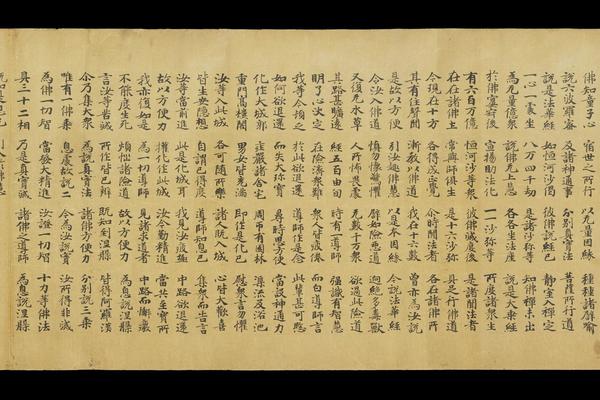 佛知童子心 宿世之所行 以无量因緣 種種諸譬喻
說六波羅蜜 及諸神通事 分別真實法 菩薩所行道
說是法華經 如恒河沙偈 彼佛說經已 靜室入禪定
一心一處坐 八万四千劫 是諸沙弥等 知佛禪未出
為无量億衆 說佛无上慧 各各坐法座 說是大乘經
於佛宴寂後 宣揚助法化 一一沙弥等 所度諸衆生
有六百万億 恒河沙等衆 彼佛滅度後 是諸聞法者
在在諸佛土 常與師俱生 是十六沙弥 具足行佛道
今現在十方 各得成正覺 尒時聞法者 各在諸佛所
其有住聲聞 漸教以佛道 我在十六數 曾亦為汝說
是故以方便 引汝趣佛慧 以是本因緣 今說法華經
令汝入佛道 慎勿懷驚懼 譬如險惡道 迥絕多毒獸
又復无水草 人所怖畏處 无數千万衆 欲過此險道
其路甚曠遠 經五百由旬 時有一導師 強識有智慧
明了心決定 在險濟衆難 衆人皆疲惓 而白導師言
我等今頓乏 於此欲退還 導師作是念 此輩甚可愍
如何欲退還 而失大珍寶 尋時思方便 當設神通力
化作大城郭 莊嚴諸舍宅 周帀有園林 渠流及浴池
重門高樓閣 男女皆充滿 即作是化已 慰衆言勿懼
汝等入此城 各可隨所樂 諸人既入城 心皆大歡喜
皆生安隱想 自謂已得度 導師知息已 集衆而告言
汝等當前進 此是化城耳 我見汝疲極 中路欲退還
故以方便力 權化作此城 汝今勤精進 當共至寶所
我亦復如是 為一切導師 見諸求道者 中路而懈廢
不能度生死 煩惱諸險道 故以方便力 為息說涅槃
言汝等苦滅 所作皆已辦 既知到涅槃 皆得阿羅漢
尒乃集大衆 為說真實法 諸佛方便力 分別說三乘
唯有一佛乘 息處故說二 今為汝說實 汝所得非滅
為佛一切智 當發大精進 汝證一切智 十力等佛法
具三十二相 乃是真實滅 諸佛之導師 為息說涅槃